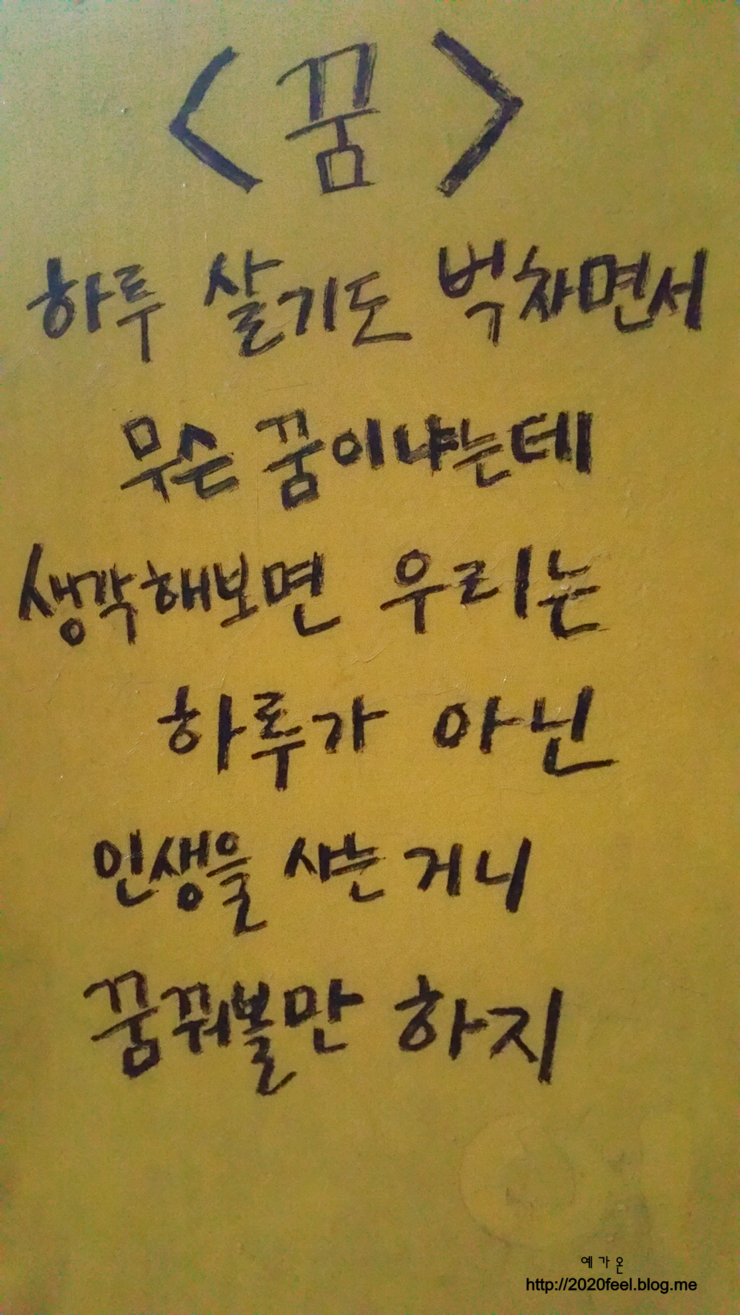 <꿈>
하루 살기도 벅차면서
무슨 꿈이냐는데
생각해보면 우리는
하루가 아닌
인생을 사는 거니
꿈꿔볼만 하지
예가온
http://2020feel.blog.me